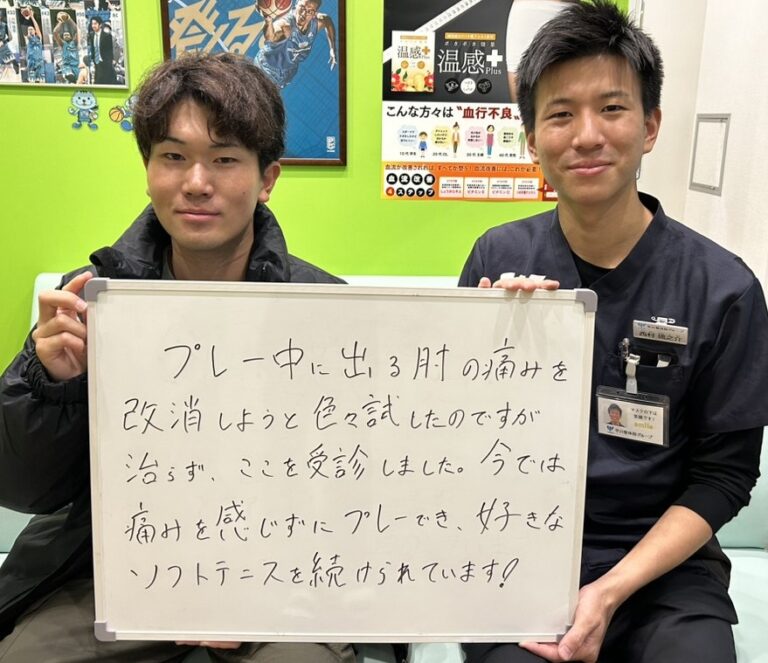 温感
Plus
温感
Plus
こんな方々は〝血行不良〟
血流改善
4ステップ
プレー中に出る肘の痛みを
改消しようと色々試したのですが
治らず、ここを受診しました。今では
痛みを感じずにプレーでき、好きな
ソフトテニスを続けられています!
smile